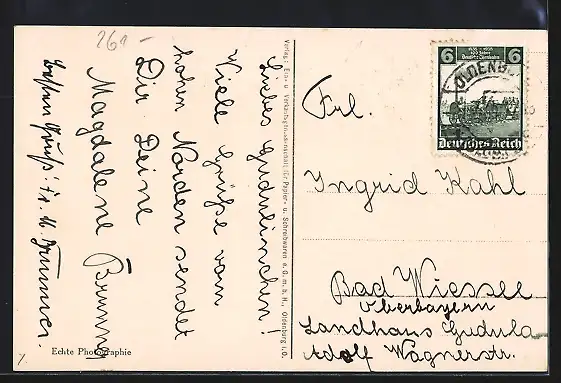 261 –
Liebes Gudulinchen!
Viele Grüße vom
hohen Norden sendet
Dir Deine
Magdalene Brunning
Besten Gruß! Fr. M. Brunner.
Echte Photographie
Verlag: Ein- u. Verkaufsgenossenschaft für Papier- u. Schreibwaren e. G. m. b. H., Oldenburg i. O.
6 6
1835 - 1935
100 Jahre
Deutsche Eisenbahn
Deutsches Reich
OLDENBURG
Frl.
Ingrid Kahl
Bad Wiessee
Oberbayern
Landhaus Gudula
Adolf Wagnerstr.